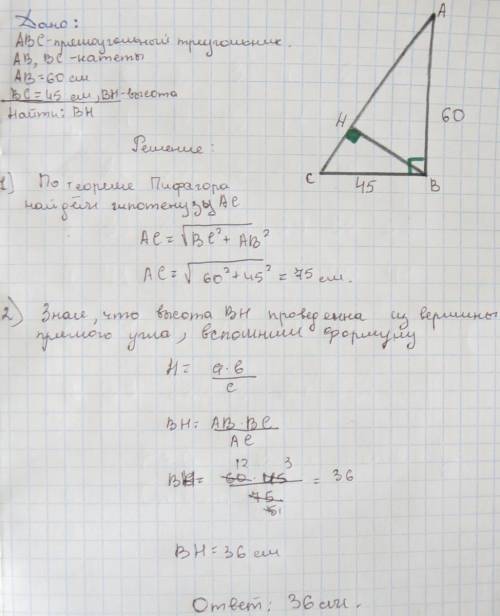 Дано:
ABC-прямоугольный треугольник.
AB, BC-катеты
AB=60 см
BC=45 см, BH-высота
Найти: BH
Решение:
A
H
60
C
45
B
1) По теореме Пифагора
найдём гипотенузу AC
AC=√BC²+AB²
AC=√60²+45² = 75 см.
2) Зная, что высота BH проведенна из вершины
прямого угла, вспомним формулу
H= a·b/c
BH= AB·BC/AC
12 3
BH= 60·45/75 = 36
51
BH=36 см
Ответ: 36 см.